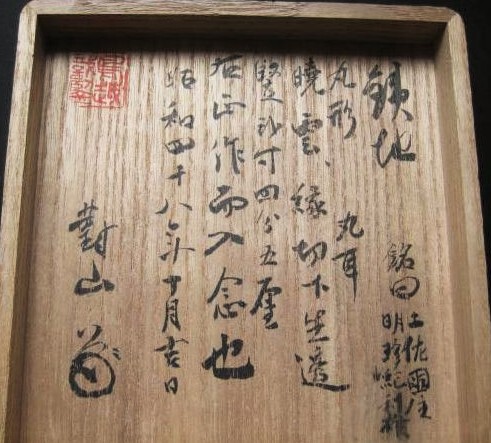 銕地
銘曰 土佐國住
明珍紀
丸形 丸耳
暁雲、縁切下生透
竪弐寸四分五厘
右正作而入念也
昭和四十八年十月吉日
山